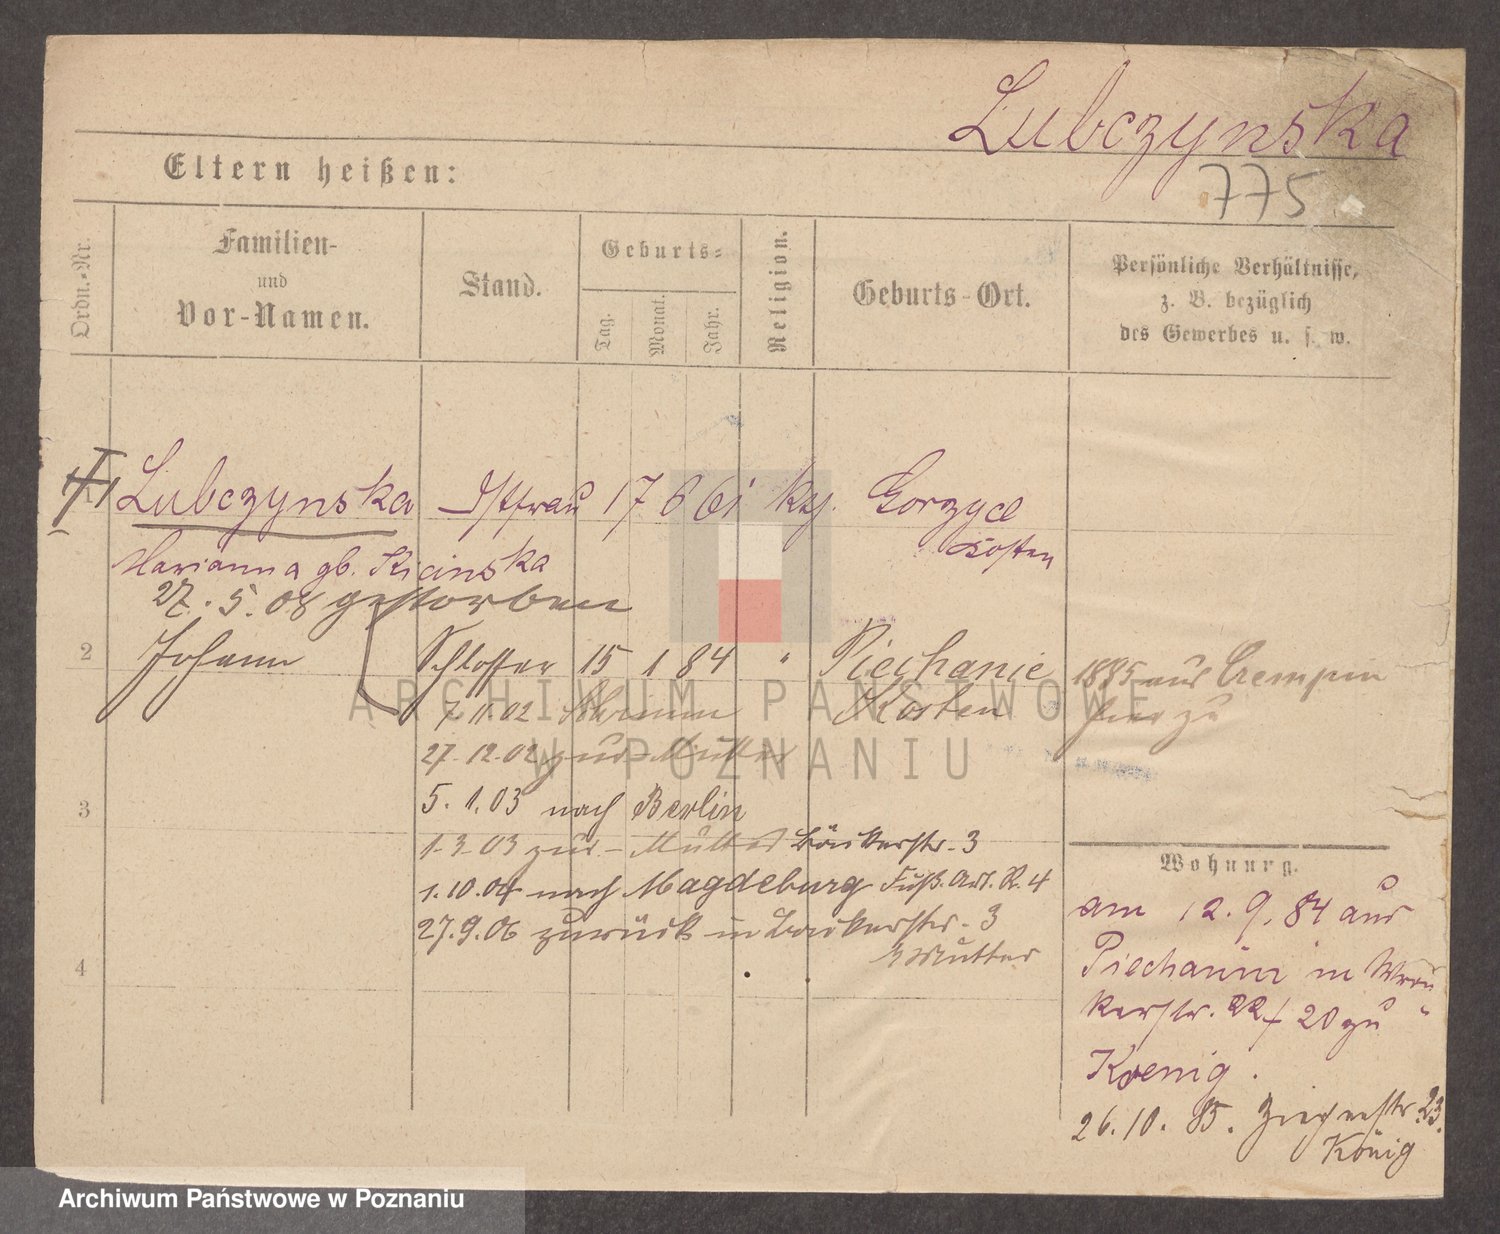 Lubczynska
775
Eltern heißen:
Ordn.-Nr.
Familien-
und
Vor-Namen.
Stand.
Geburts-
Tag.
Monat.
Jahr.
Religion.
Geburts-Ort.
Persönliche Verhältnisse,
z. B. bezüglich
des Gewerbes u. s. w.
Lubczynska 17 6 61 kth. Gorzyce
Kosten
Marianna gb. Kicinska
27. 5. 08 gestorben
2 Johann Schlosser 15 1 84 " Piechanie
Kosten
1885 aus Crempin
hier zu
7. 11. 02
27. 12. 02 zur Mutter
3 5. 1. 03 nach Berlin
1. 3. 03 zur Mutter Bäckerstr. 3
1. 10. 04 nach Magdeburg Fuß. Art. R. 4
27. 9. 06 zurück in Bäckerstr. 3
z Mutter
4
Wohnung.
am 12. 9. 84 aus
Piechanin in Wron
kerstr. 22/20 zu
Koenig.
26. 10. 85. Ziegenstr. 23.
König
ARCHIWUM PAŃSTWOWE
W POZNANIU
Archiwum Państwowe w Poznaniu